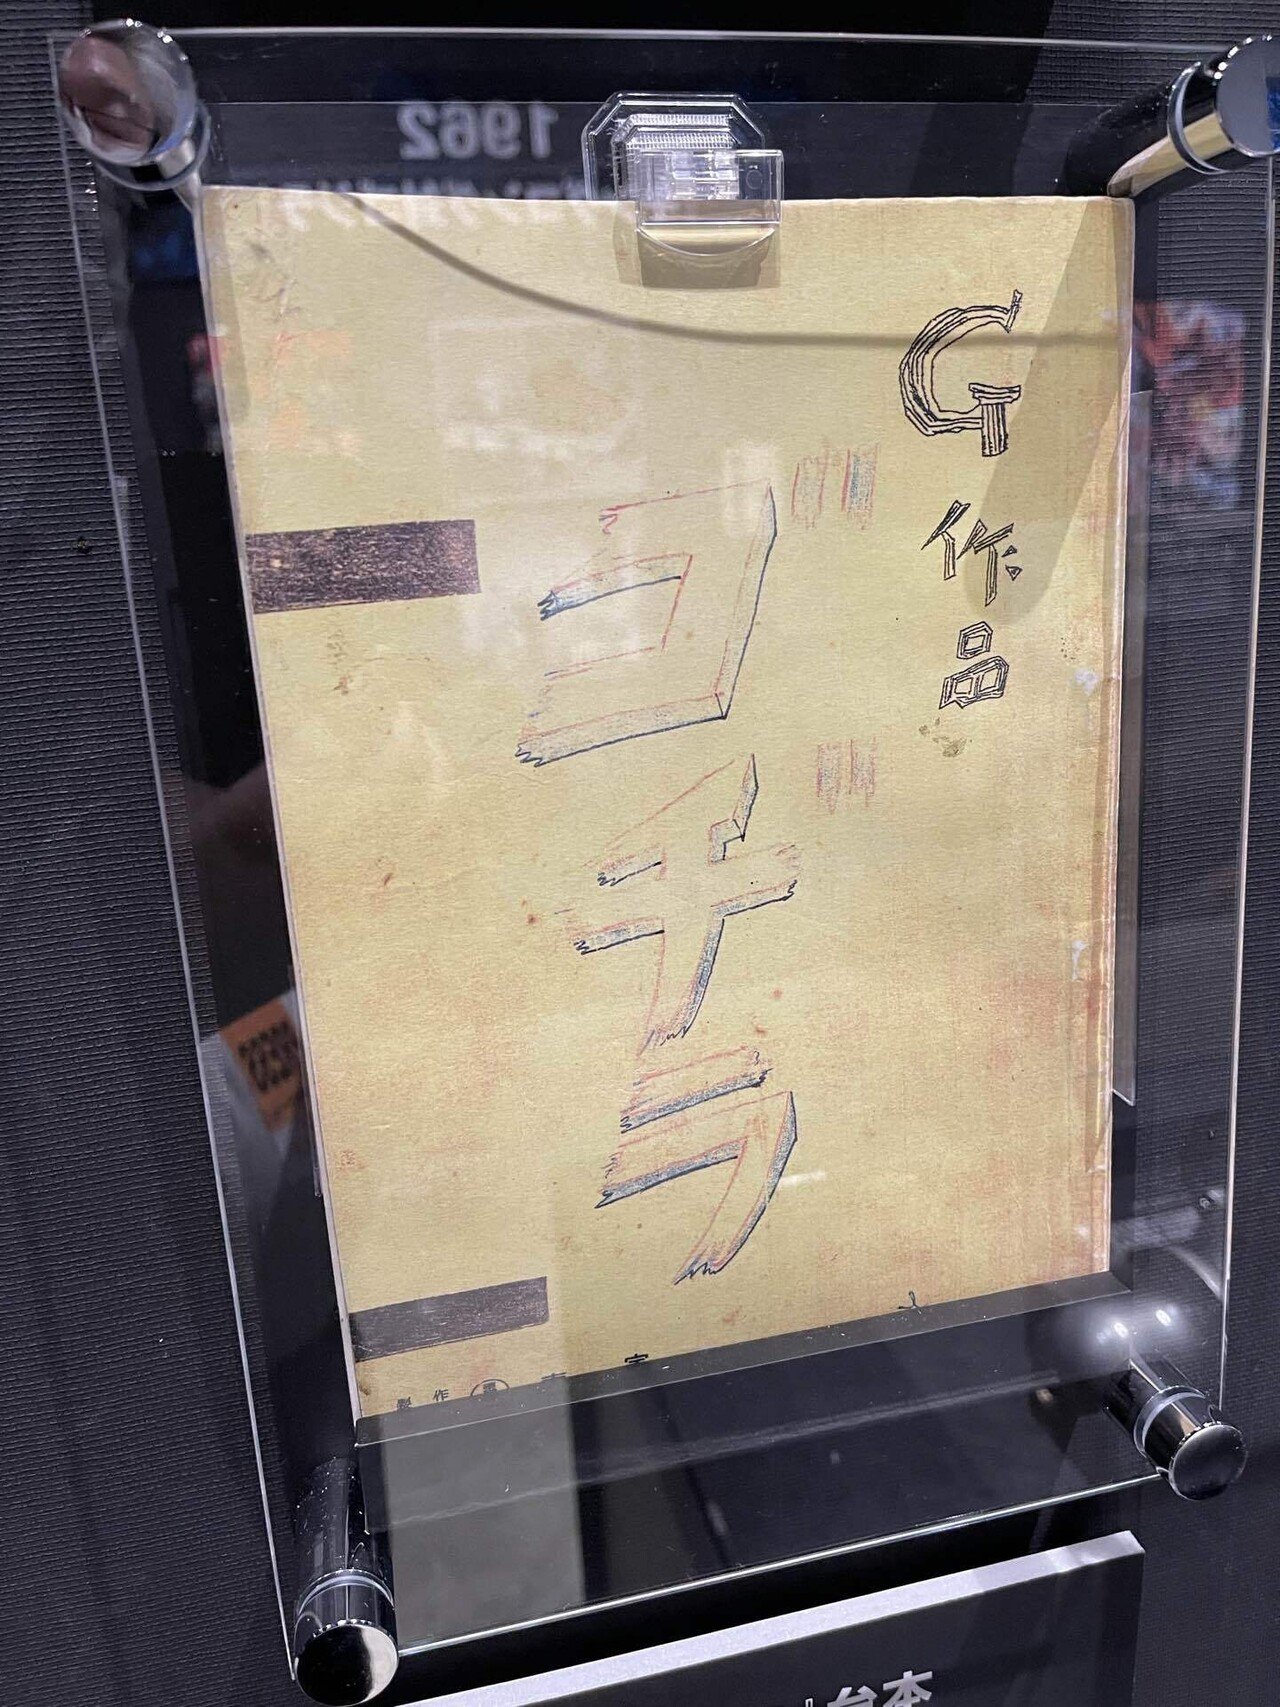 1962
G作品
ゴヂラ
製作
台本